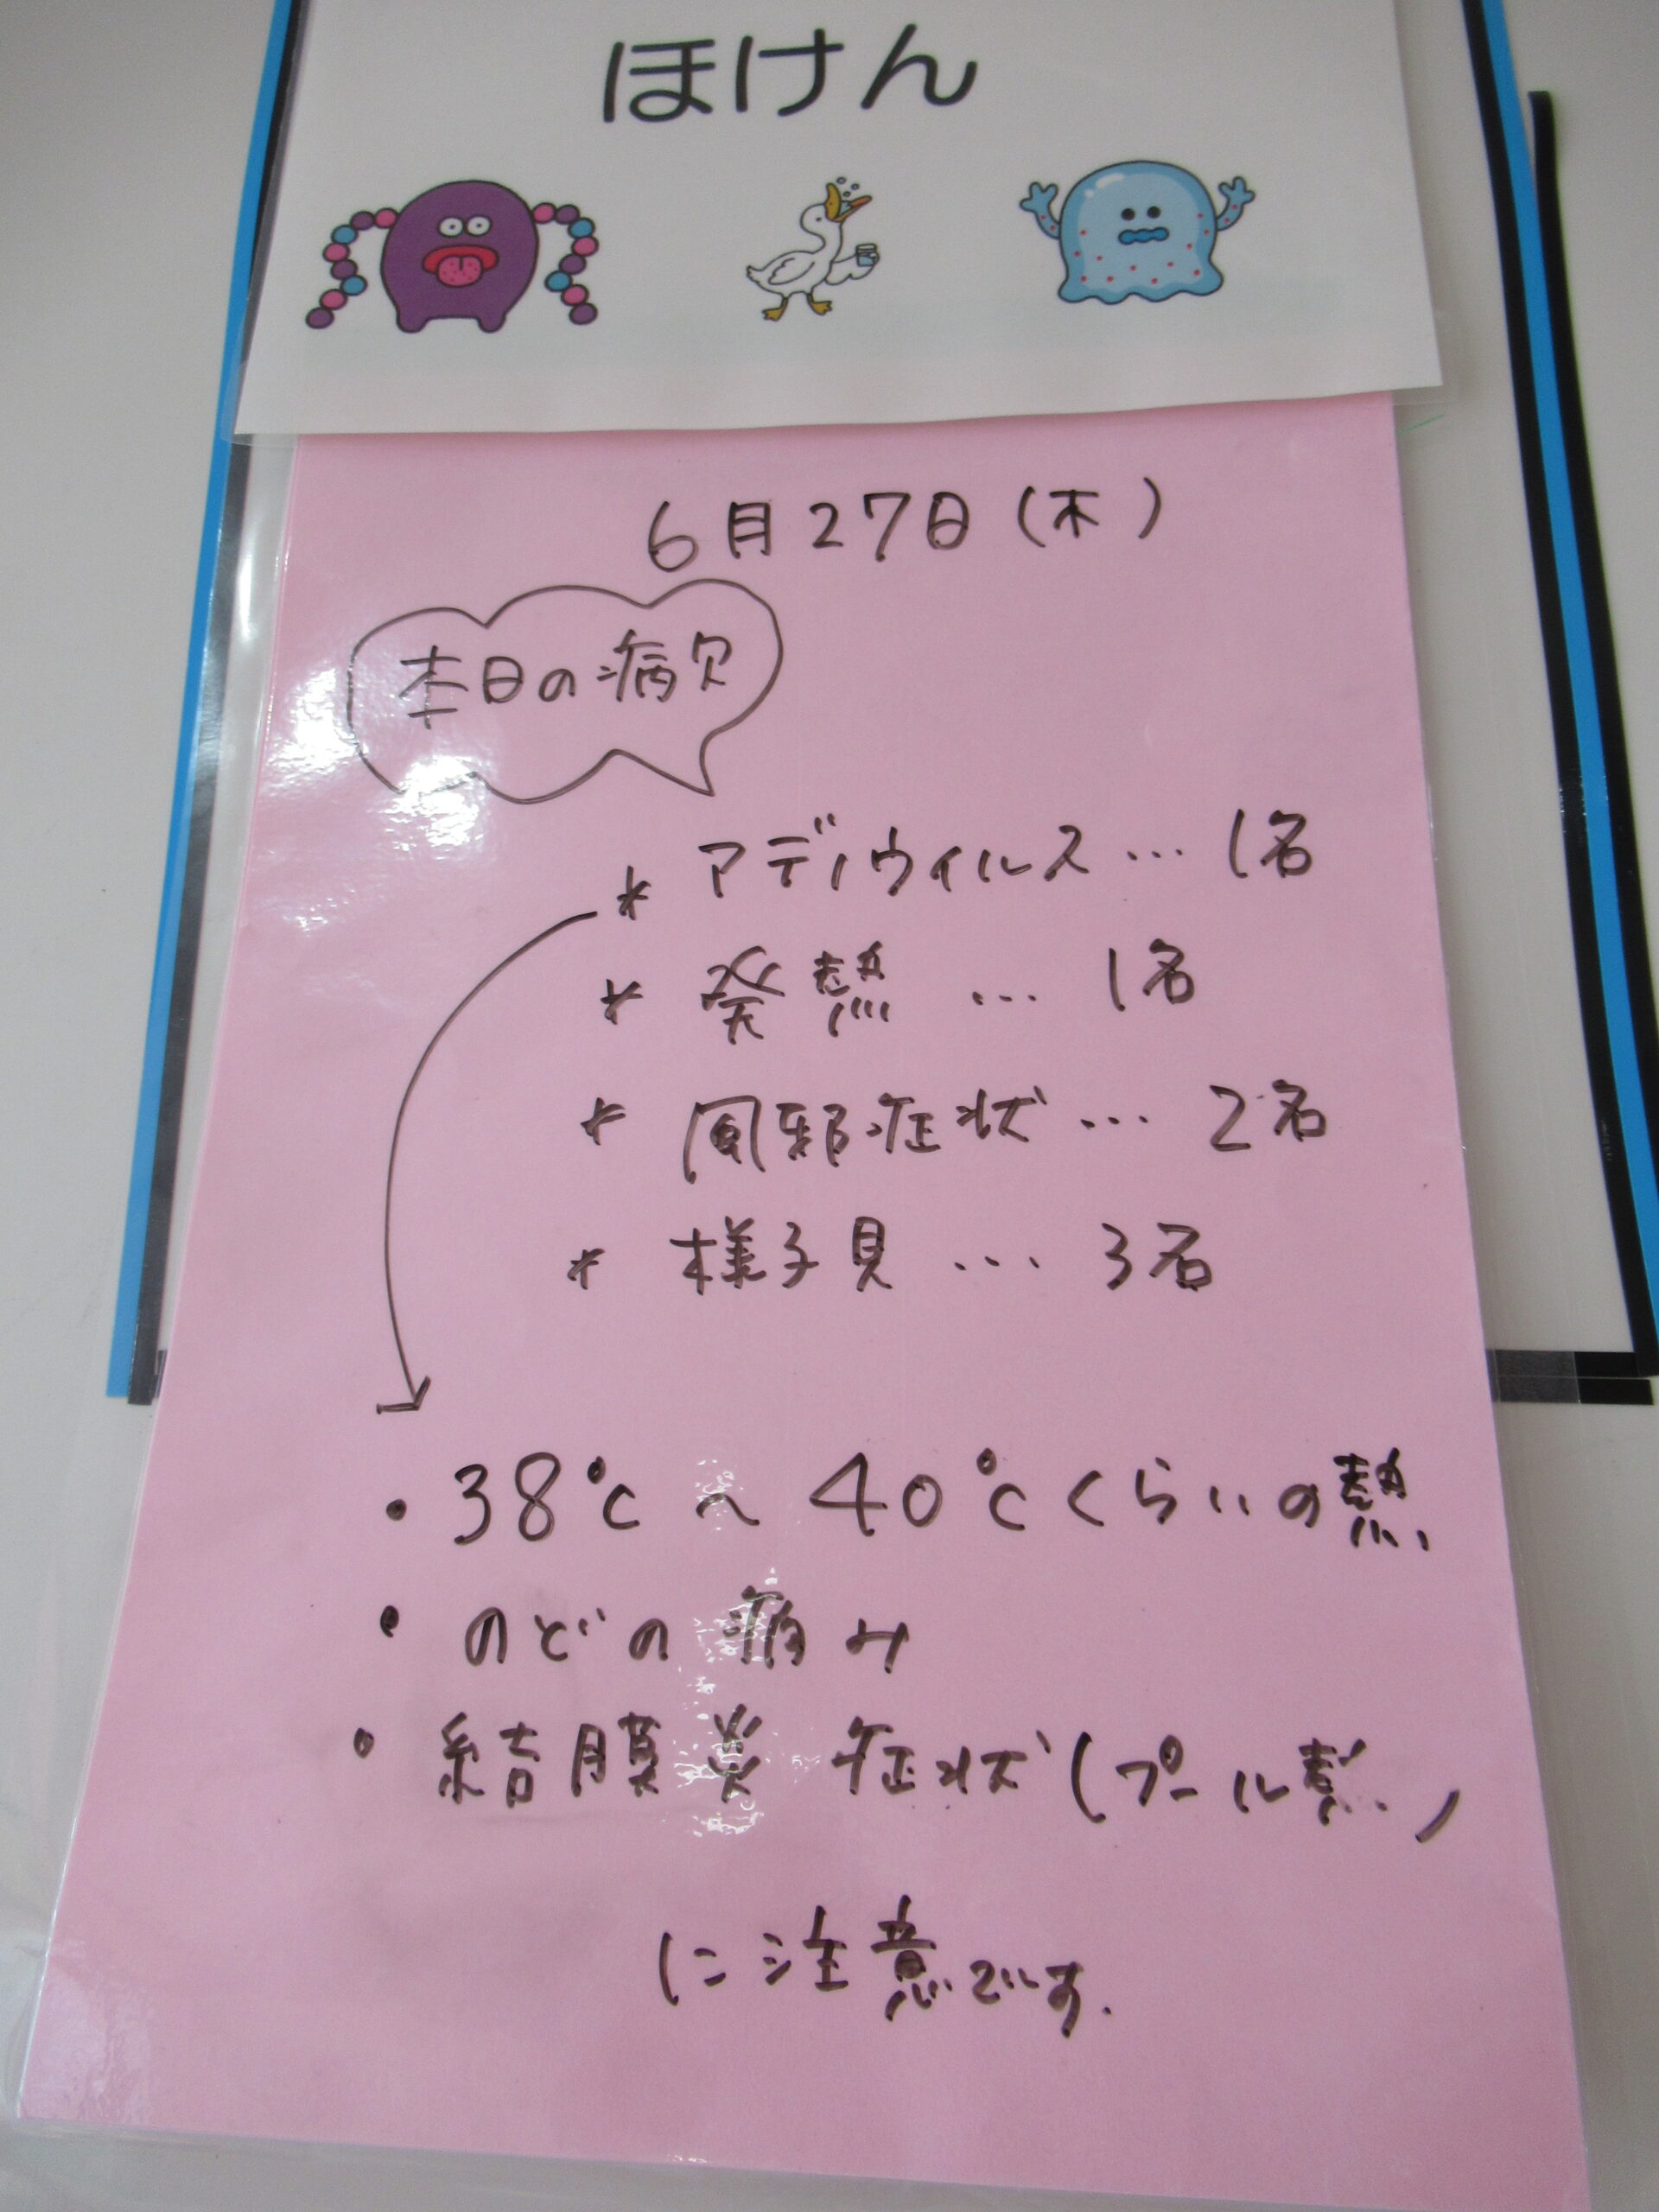 ほけん
6月27日(木)
本日の病欠
* アデノウィルス…1名
* 発熱…1名
* 風邪症状…2名
* 様子見…3名
・38℃～40℃くらいの熱
・のどの痛み
・結膜炎症状(プール熱)
に注意です.